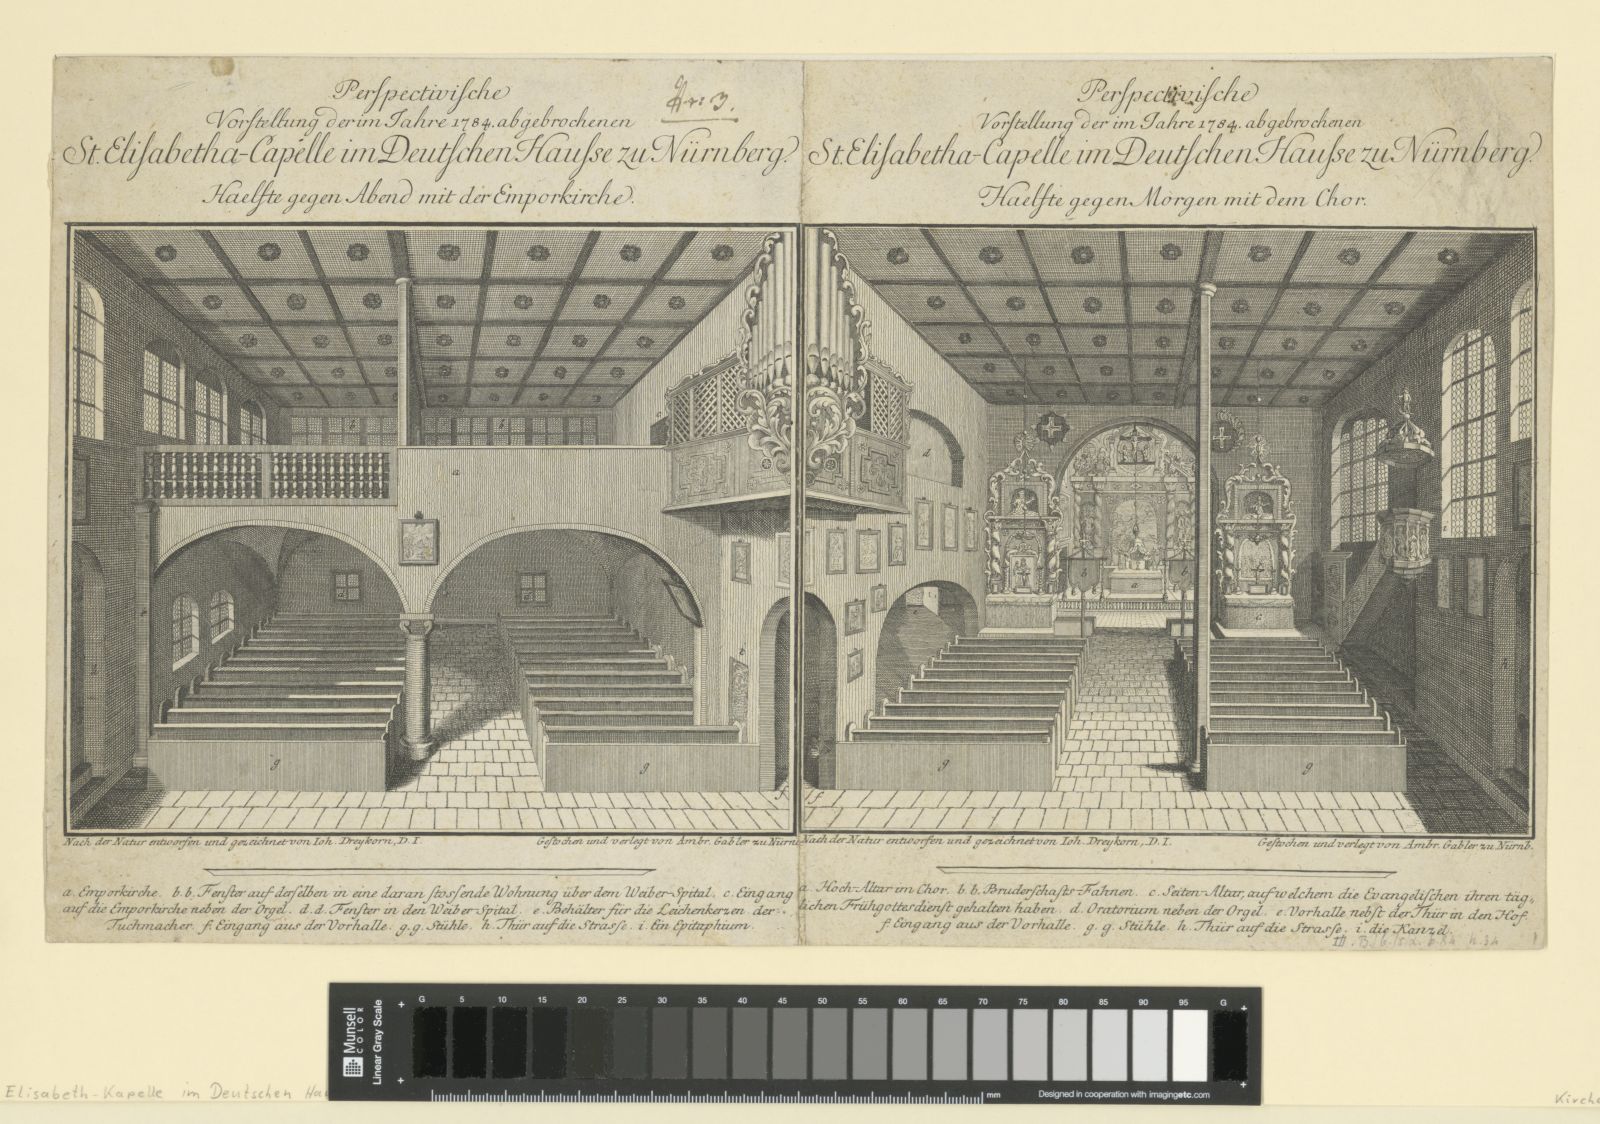 Perspectivische
Vorstellung der im Jahre 1784. abgebrochenen
St. Elisabetha-Capelle im Deutschen Hausse zu Nürnberg.
Haelfte gegen Abend mit der Emporkirche.
Nr: 3.
Perspectivische
Vorstellung der im Jahre 1784. abgebrochenen
St. Elisabetha-Capelle im Deutschen Hausse zu Nürnberg.
Haelfte gegen Morgen mit dem Chor.
Nach der Natur entworfen und gezeichnet von Ioh. Dreykorn, D. I.
Gestochen und verlegt von Ambr. Gabler zu Nürn
Nach der Natur entworfen und gezeichnet von Ioh. Dreykorn, D. I.
Gestochen und verlegt von Ambr. Gabler zu Nürnb.
a. Emporkirche. b. b. Fenster auf derselben in eine daran stossende Wohnung über dem Weiber-Spital. c. Eingang
auf die Emporkirche neben der Orgel. d. d. Fenster in den Weiber Spital. e. Behälter für die Leichenkerzen der
Tuchmacher. f. Eingang aus der Vorhalle. g. g. Stühle. h. Thür auf die Strasse. i. Ein Epitaphium.
a. Hoch-Altar im Chor. b. b. Bruderschafts-Fahnen. c. Seiten-Altar, auf welchem die Evangelischen ihren täg-
lichen Frühgottesdienst gehalten haben. d. Oratorium neben der Orgel. e. Vorhalle nebst der Thür in den Hof.
f. Eingang aus der Vorhalle. g. g. Stühle. h. Thür auf die Strasse. i. die Kanzel.
Munsell
COLOR
Linear Gray Scale
G 5 10 15 20 25 30 35 40 45 50 55 60 65 70 75 80 85 90 95 G
mm
Designed in cooperation with imagingetc.com
Elisabeth-Kapelle im Deutschen